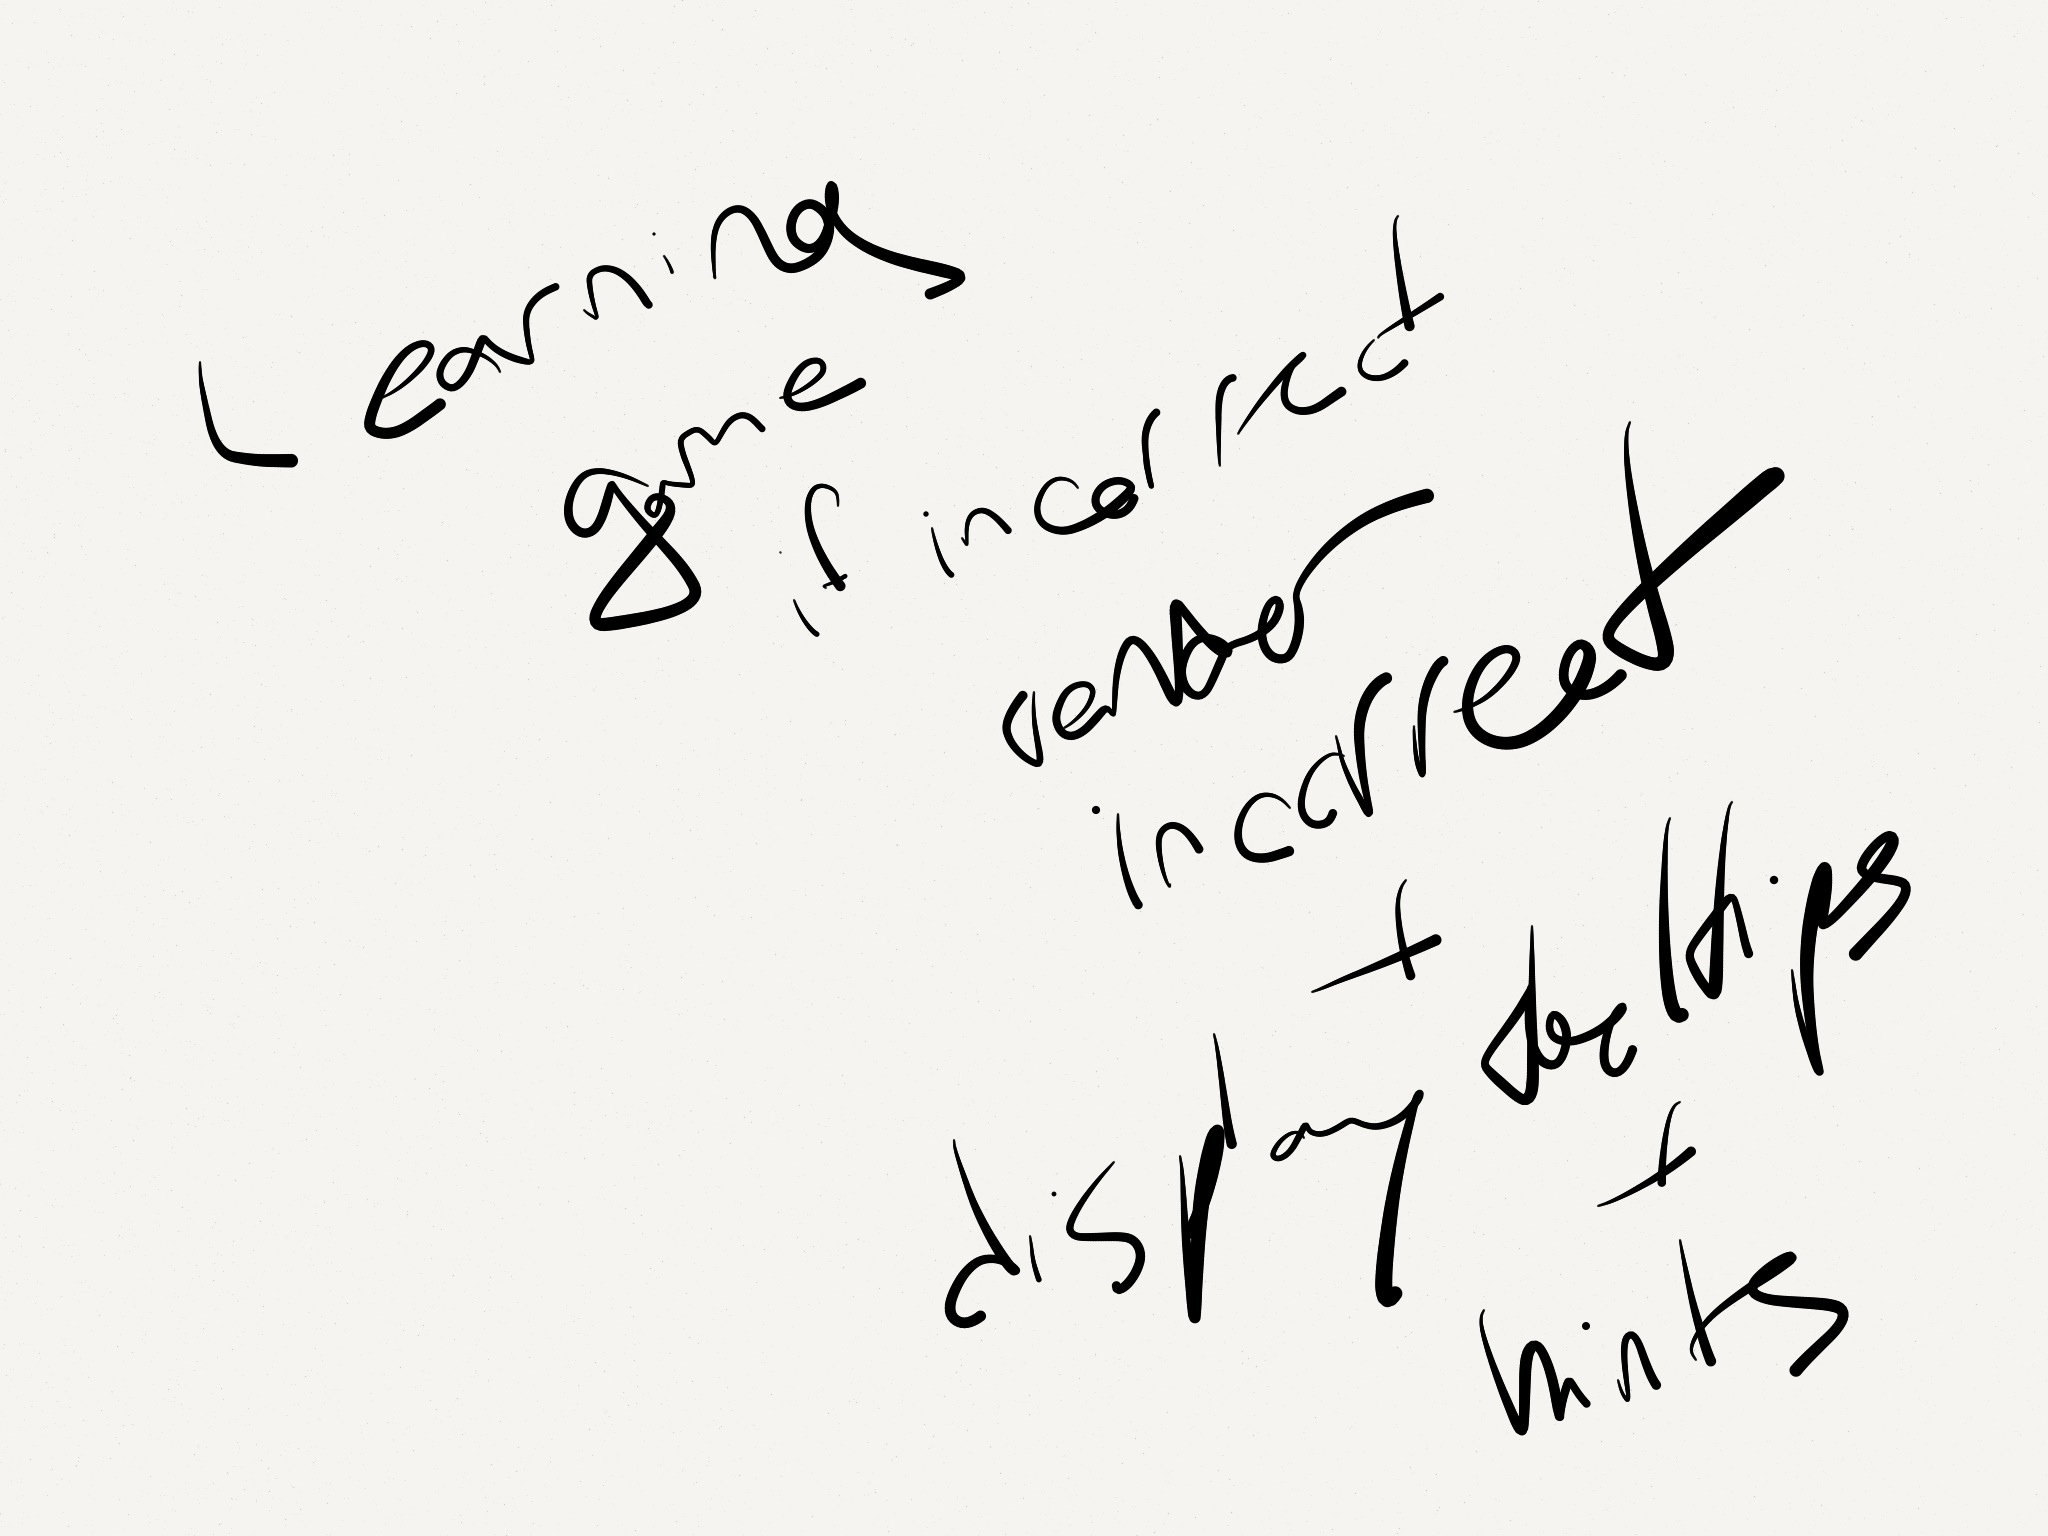 Learning
game
if incorrect
render
incorrect
+
display tooltips
+
hints